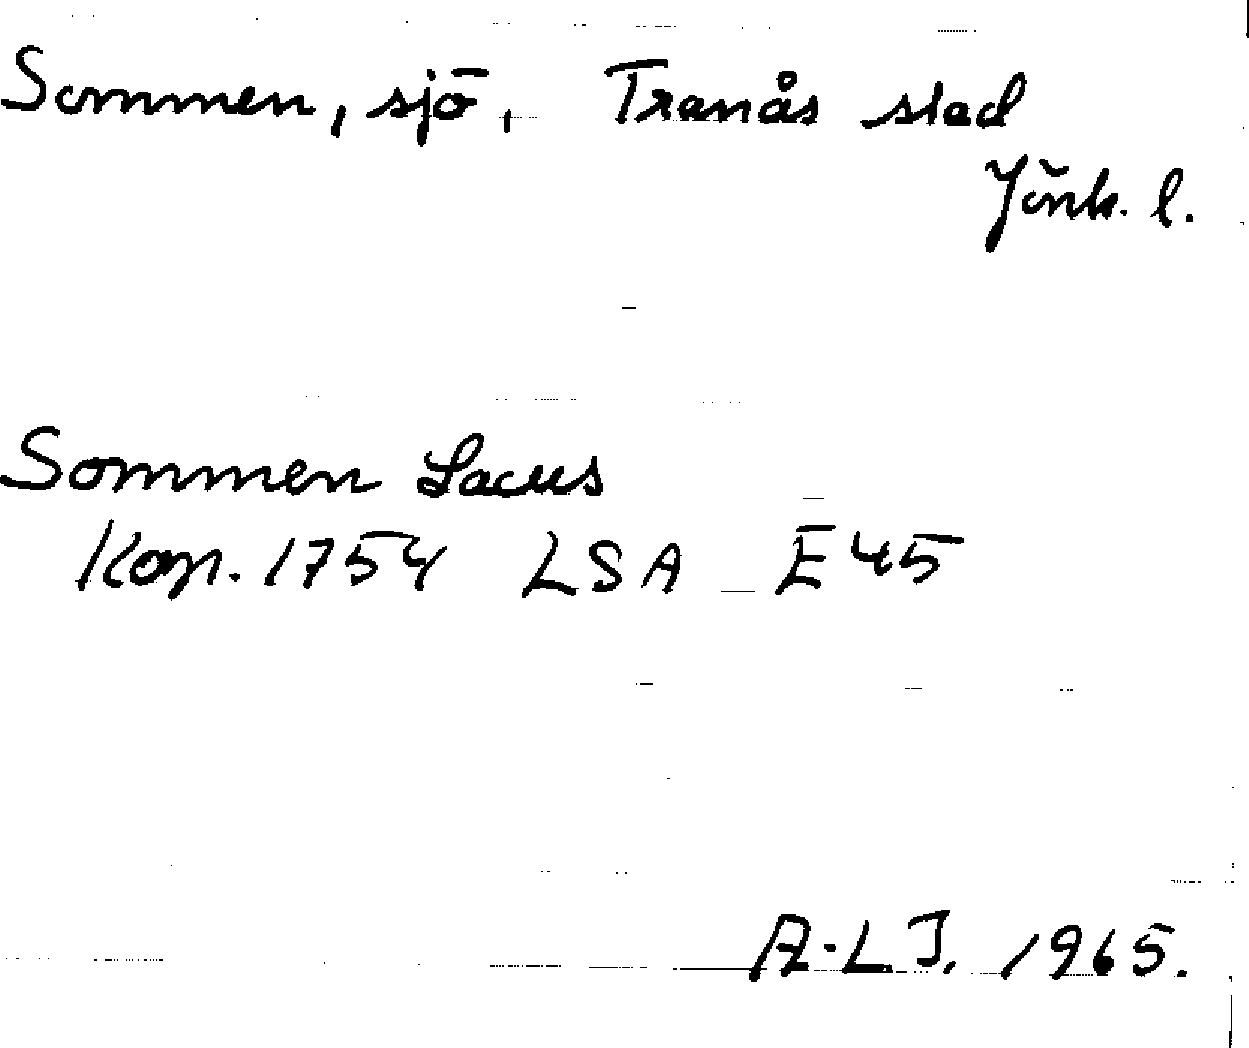 Sommen, sjö, Tranås stad
Jönk. l.
Sommen Lacus
Kop. 1754 LSA E45
A-L J. 1965.